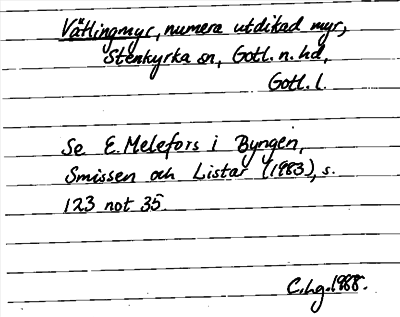 Vätlingmyr, numera utdikad myr,
Stenkyrka sn, Gotl. n. hd,
Gotl. l.
Se E. Melefors i Byngen,
Smissen och Listar (1983), s.
123 not 35.
C. Lg. 1988.